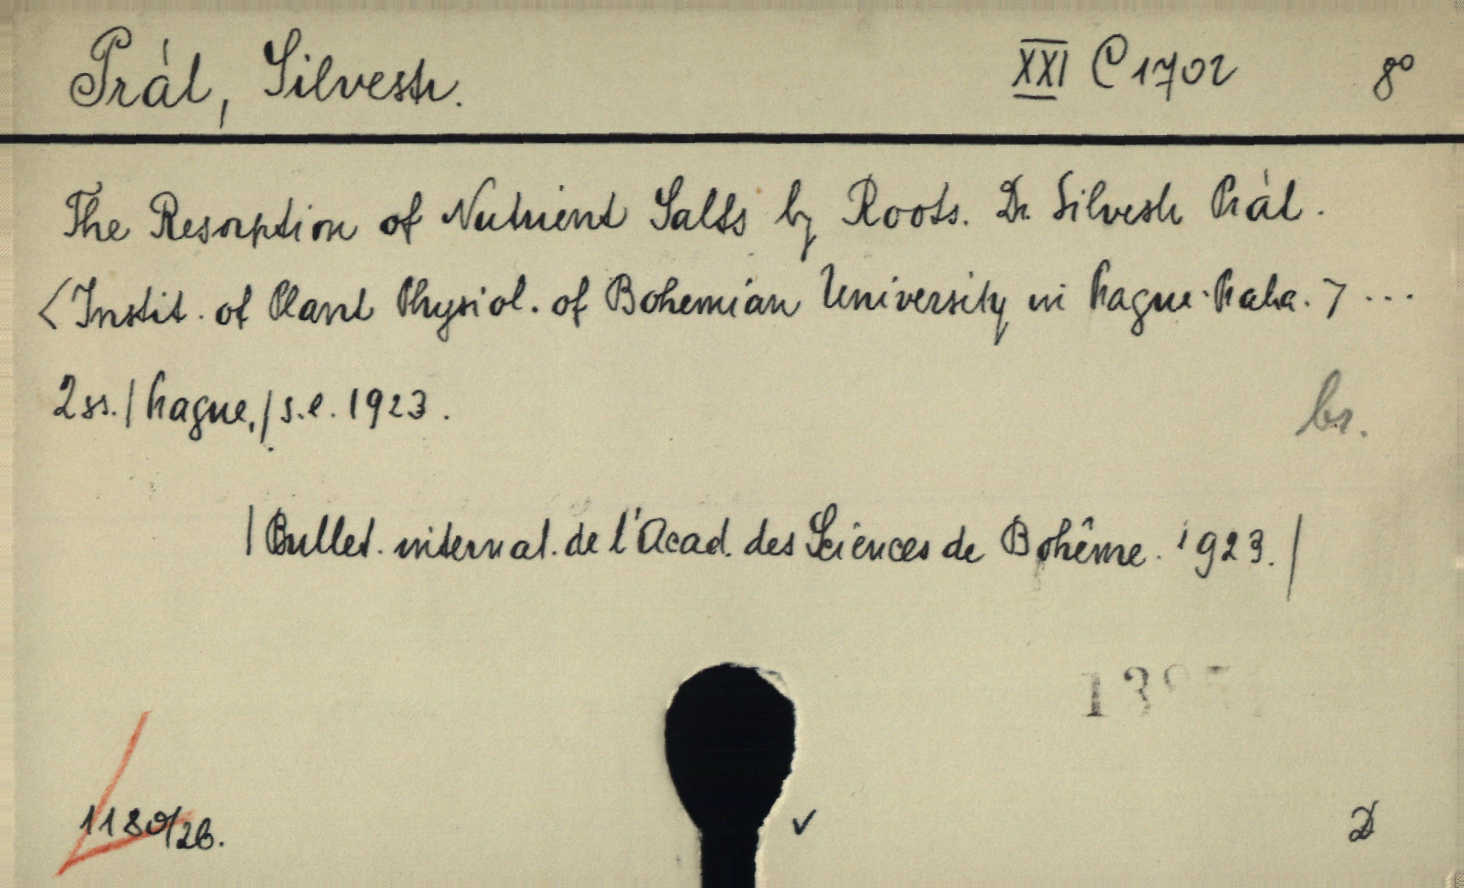 Prát, Silvestr. XXI C 1702 8°
The Resorption of Nutrient Salts by Roots. Dr. Silvestr Prát.
<Instit. of Plant Physiol. of Bohemian University in Prague-Praha.> ...
2 ss. / Prague, / s.e. 1923.
br.
/ Bullet. internat. de l'Acad. des Sciences de Bohême. 1923. /
1180/26.
D